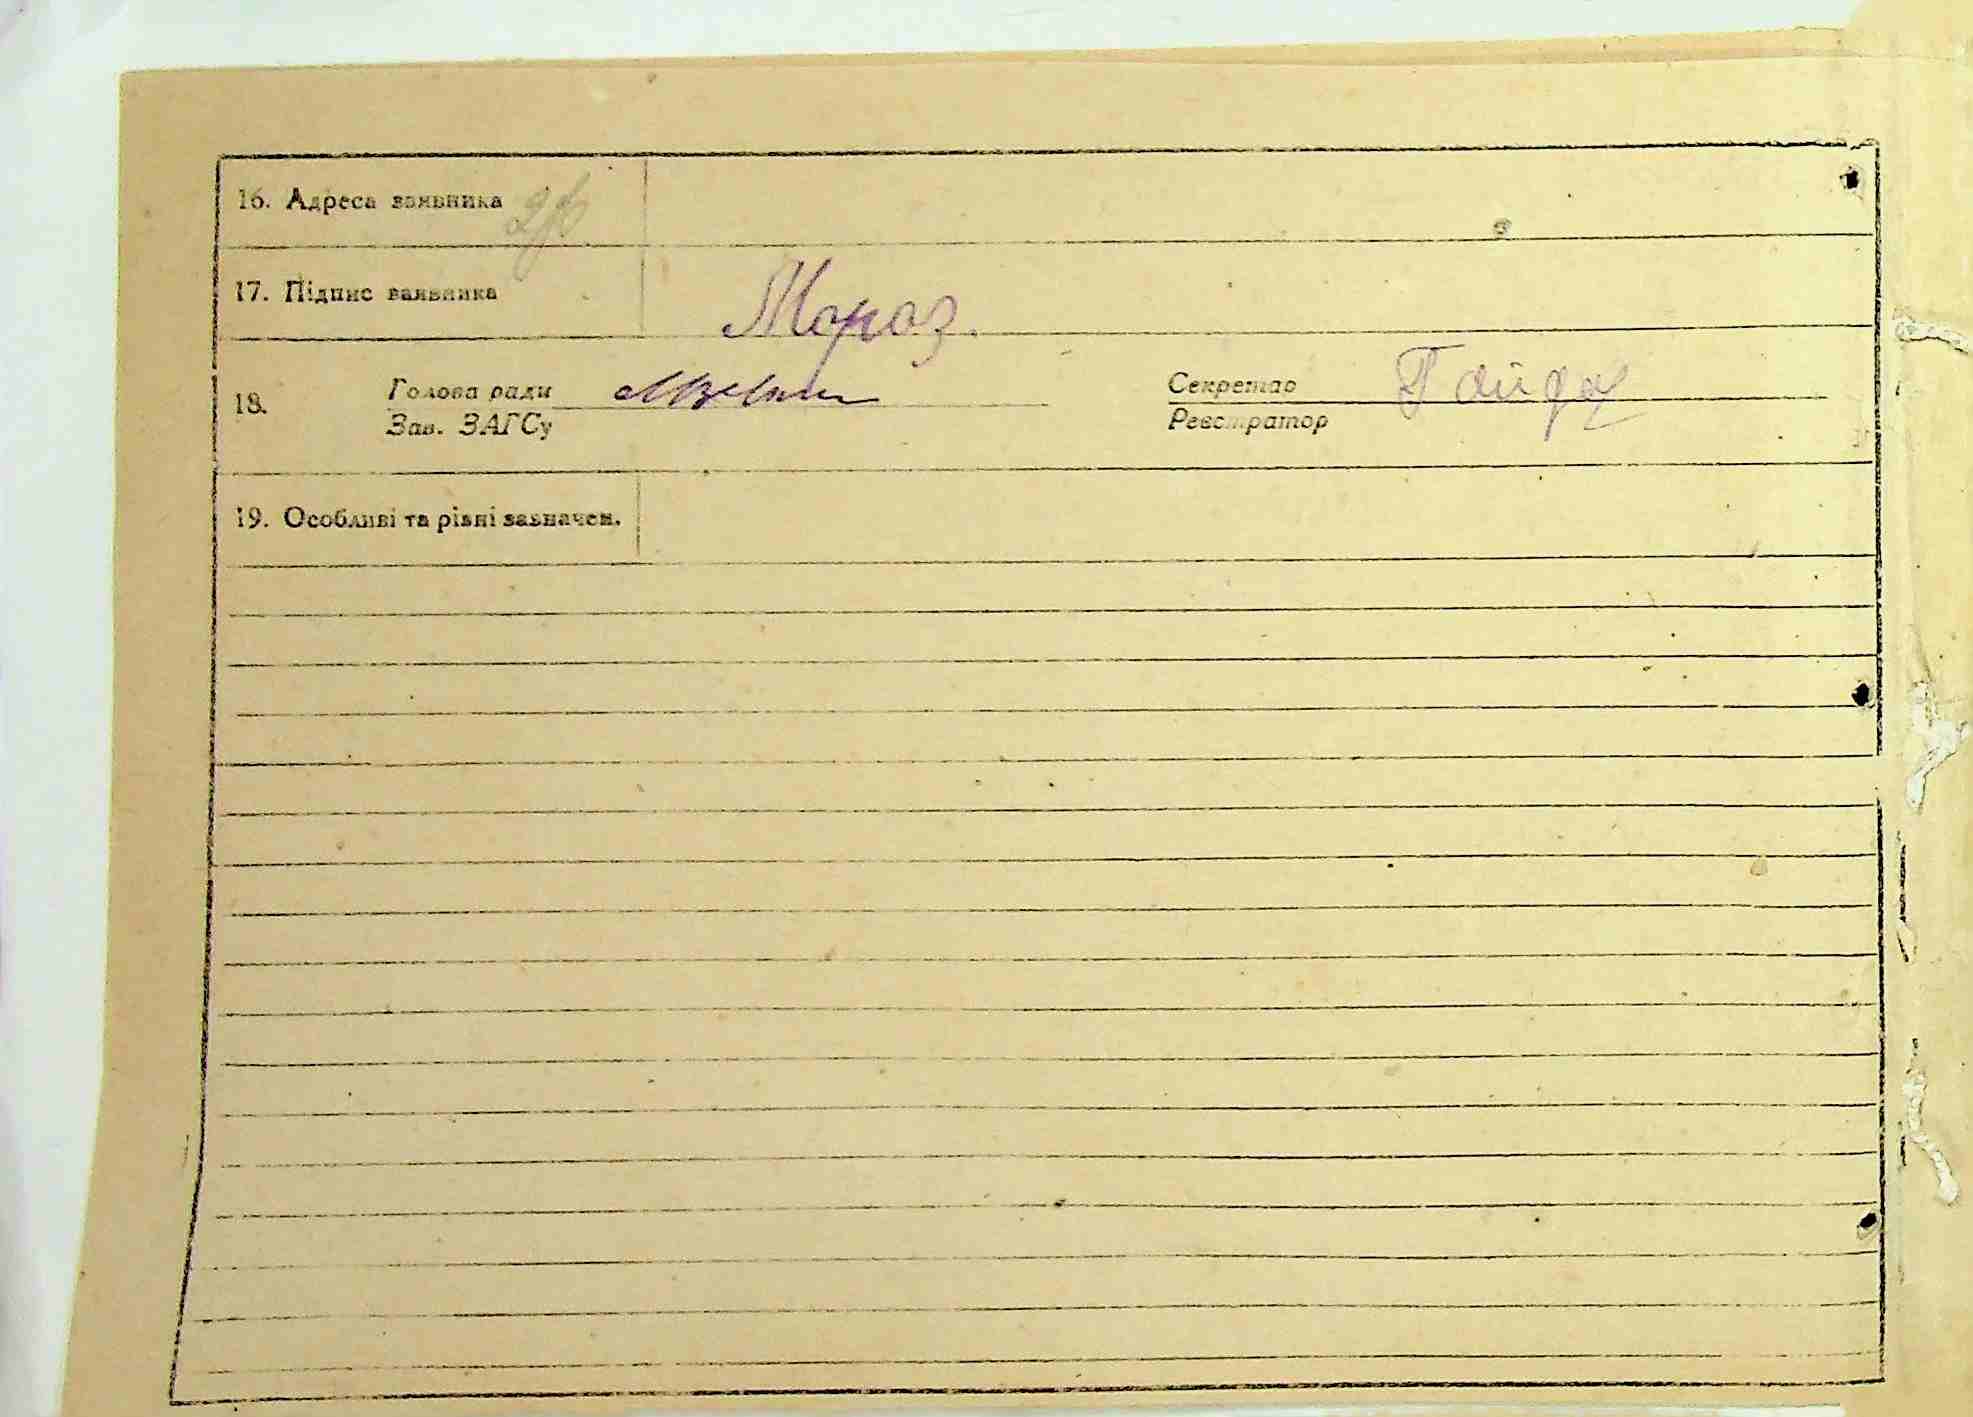 16. Адреса заявника
17. Підпис заявника Мороз.
18. Голова ради Секретар Гайда
Зав. ЗАГСу Реєстратор
19. Особливі та різні зазначен.